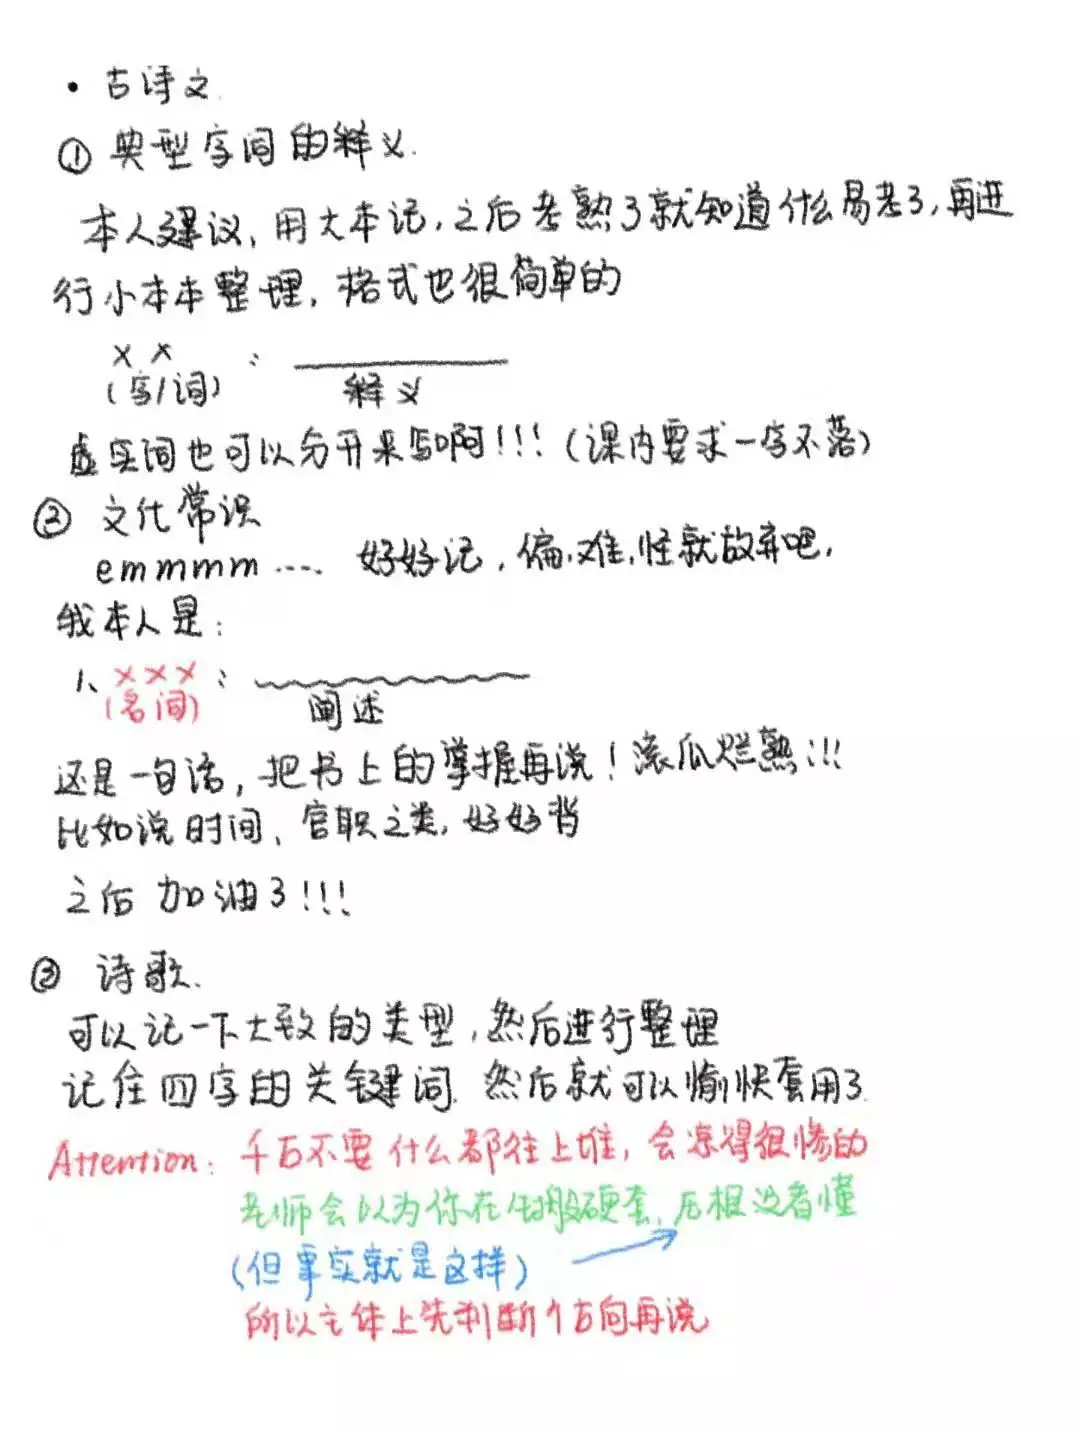 • 古诗文
① 典型字词的释义.
本人建议，用大本记，之后考熟了就知道什么易考了，再进
行小本本整理，格式也很简单的
×× ：
(字/词) 释义
虚实词也可以分开来写啊!!!（课内要求一字不落）
② 文化常识
emmmm .... 好好记，偏、难、怪就放弃吧，
我本人是：
1、×××：
(名词) 阐述
还是一句话，把书上的掌握再说！滚瓜烂熟!!!
比如说时间、官职之类，好好背
之后加油了!!!
③ 诗歌.
可以记一下大致的类型，然后进行整理
记住四字的关键词. 然后就可以愉快套用了.
Attention: 千万不要什么都往上堆，会凉得很惨的
老师会以为你在生搬硬套，压根没看懂
(但事实就是这样)
所以主体上先判断个方向再说